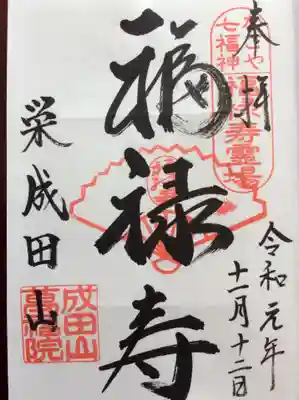 奉拝
七福神
福禄寿霊場
福禄寿
令和元年
十一月十二日
栄成田山
成田山
萬福院